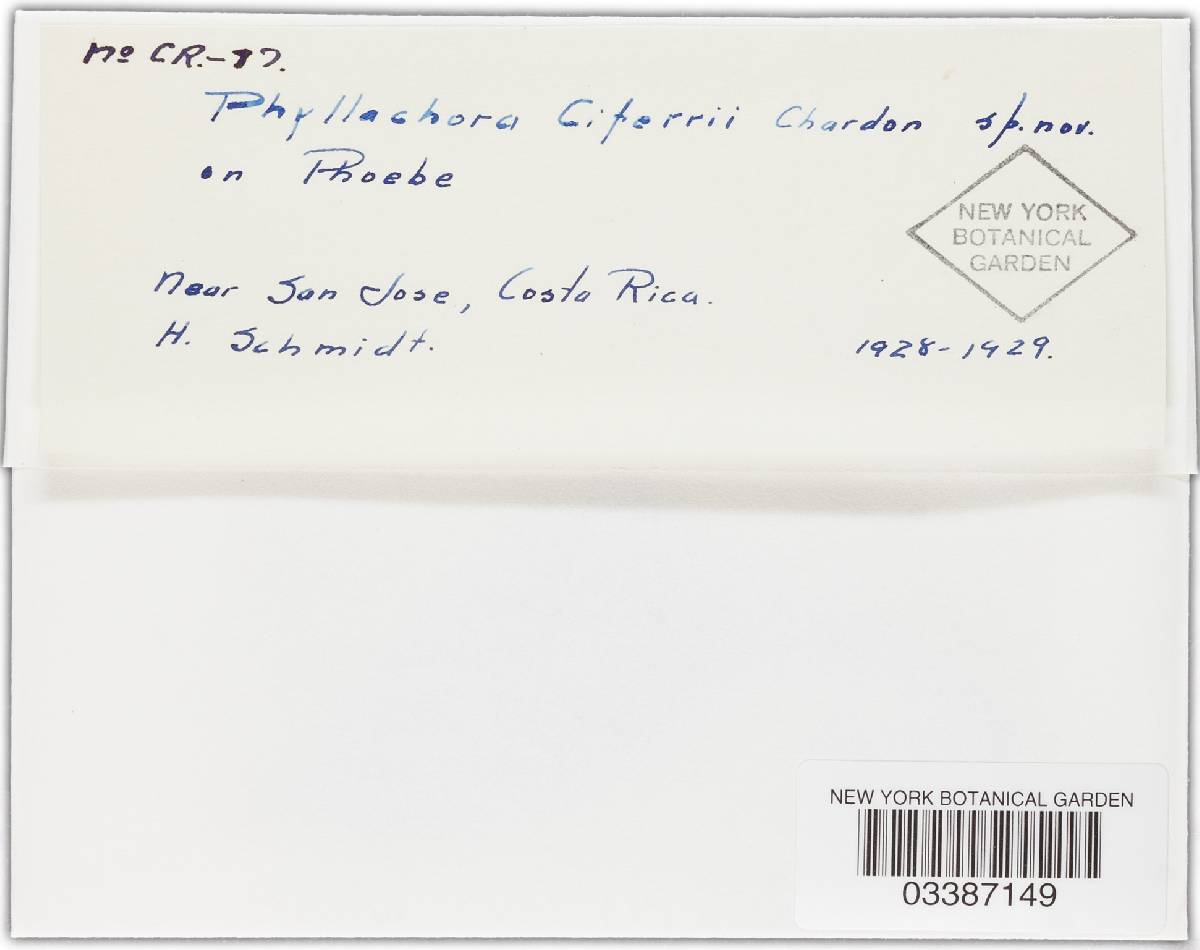 No CR.-17.
Phyllachora Ciferrii Chardon sp. nov.
on Phoebe
NEW YORK
BOTANICAL
GARDEN
Near San Jose, Costa Rica.
H. Schmidt.
1928-1929.
NEW YORK BOTANICAL GARDEN
03387149